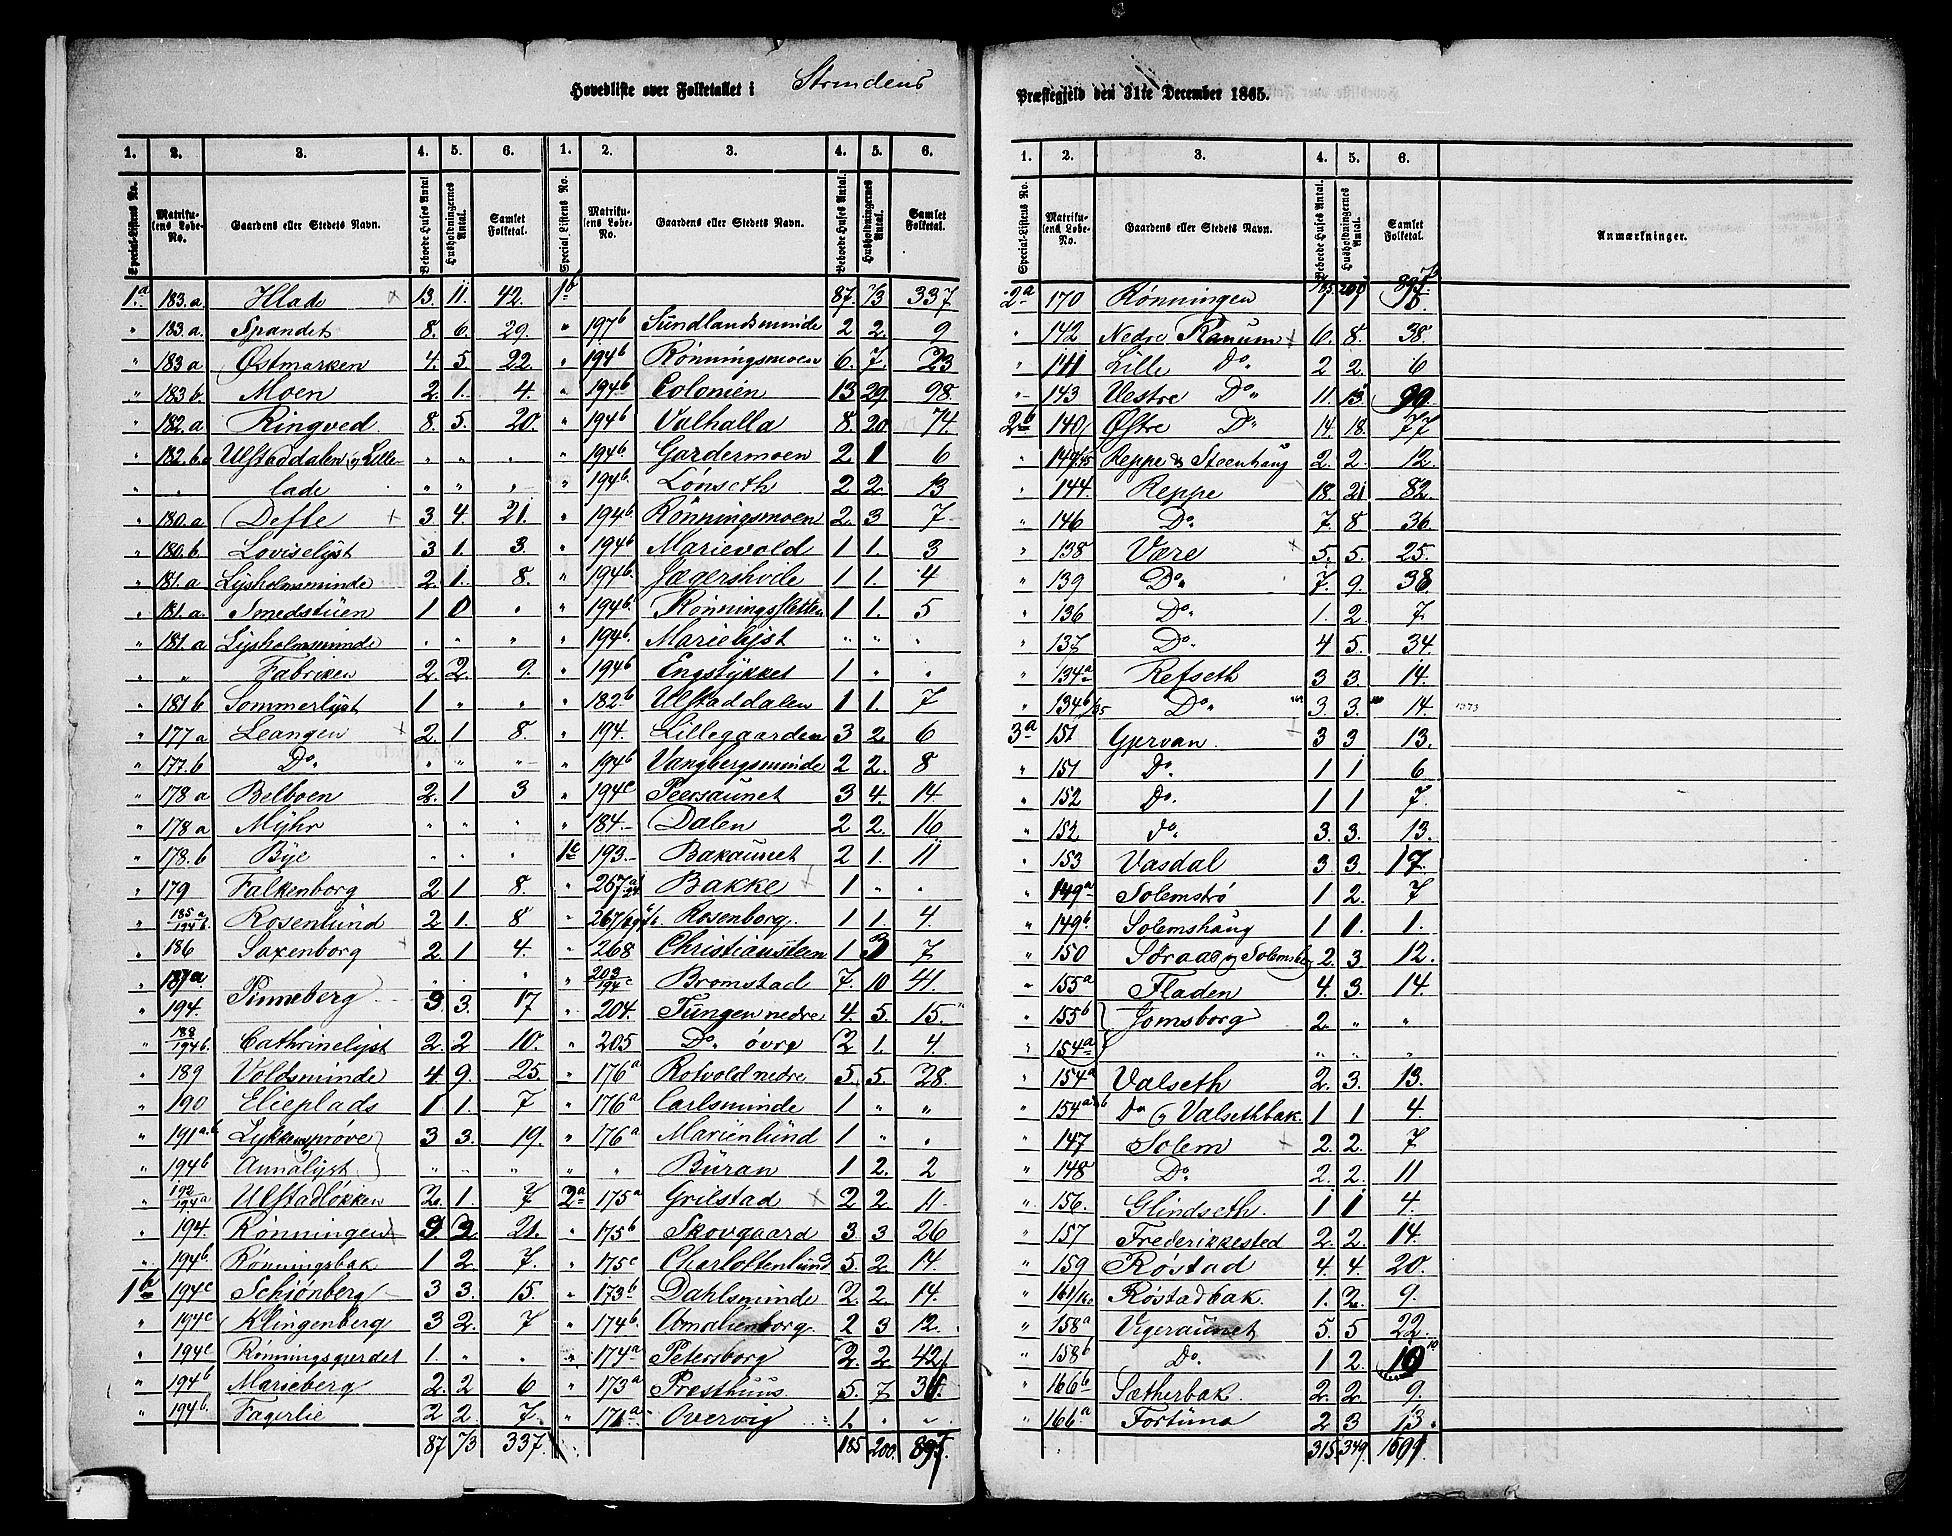 Hovedliste over Folketallet i Strindens Præstegjeld den 31te December 1865.
1. 2. 3. 4. 5. 6. 1. 2. 3. 4. 5. 6.
Special-Listens No. Matrikulens Løbe-No. Gaardens eller Stedets Navn. Beboede Huses Antal Husholdningernes Antal. Samlet Folketal. Special-Listens No. Matrikulens Løbe-No. Gaardens eller Stedets Navn. Beboede Huses Antal. Husholdningernes Antal. Samlet Folketal.
1a 183.a. Hlade 13. 11. 42.
" 183.a. Spandet 8. 6. 29.
" 183.a Østmarken 4. 5. 22.
" 183 b. Moen 2. 1. 4.
" 182.a Ringved. 8. 5. 20.
" 182.b. Ulstaddalen og Lille- " " "
" " lade " " "
" 180.a Defle 3. 4. 21.
" 180.b Loviselyst 3 1. 3.
" 181.a Lysholmsminde 2. 1. 8.
" 181.a. Smedstuen 1 0 "
" 181.a Lysholmsminde " " "
" " Fabriken 2. 2. 9.
" 181 b Sommerlyst 1 " "
" 177 a Leangen 2. 1 8.
" 177.b Do " " "
" 178 a Belboen 2. 1 3
" 178 a Myhr " " "
" 178.b Bye " " "
" 179 Falkenborg 2 1 8.
" 185.a/194 b. Rosenlund 2 1. 8
" 186 Saxenborg 2 1 4.
" 187 a " " "
" 194. Pinneberg 3 3. 17
" 188/194 b. Cathrinelyst 2. 2 10.
" 189 Voldsminde 4. 9. 25.
" 190 Elieplads 1 1. 7
" 191 a.b Lykkensprøve 3 3. 19.
" 194 b Annalyst " " "
" 192/194 a Ulstadløkken 2. 1. 7
" 194. Rønningen 9. 3. 21.
" 194 b. Rønningsbak 1 2. 7.
1b 194 c Schiønberg 3 3. 15.
" 194 c Klingenberg 3 2. 7
" 194 c Rønningsgjerdet 1. " "
" 194 b Marieberg 2. 2 6
" 194 b. Fagerlie 2 2. 7.
87 73 337.
1b 87. 73 337
" 197 b Sundlandsminde 2 2. 9
" 194 b Rønningsmoen 6. 7. 23
" 194 b Colonien 13 29. 98.
" 194 b Valhalla 8. 20. 74.
" 194 b. Gardermoen 2 1 6
" 194 b. Lønseth 2 2. 13
" 194 b Rønningsmoen 2. 3 7
" 194 b Marievold 1 1. 3
" 194 b. Jægershvile 1 1. 4
" 194 b. Rønningsfletten 1 1. 5
" 194 b. Marielyst " " "
" 194 b Engstykket 1 " "
" 182 b Ulstaddalen 1 1. 7
" 194. Lillegaarden 3 2. 6
" 194 b Vangbergsminde 2 2. 8
" 194 c Peersaunet 3 4. 14
" 184. Dalen 2 2. 16
1c 193. Bakaunet 2 1. 11
" 267 a Bakke 1 " "
" 267 b Rosenborg. 1 1. 4.
" 268 Christiansteen 1 3 7
" 203/194 c Bromstad 7. 10 41.
" 204. Tungen nedre 4. 5. 15.
" 205 Do øvre 2 1. 4.
" 176 a Rotvold nedre 5. 5. 28.
" 176 a Carlsminde 1 " "
" 176 a Marienlund 1 " "
" " Buran 1 2. 2
2a 175 a Grilstad 2 2. 11.
" 175 b Skovgaard 3 3 26
" 175 c Charlottenlund 5. 2 14.
" 173 b Dahlsminde 2. 2. 14.
" 174 b. Amalienborg. 2 3 12.
" 174 a Petersborg 2. 2 42
" 173 a Presthuus 5. 7. 36.
" 171 a Overvig 1. " "
185 200. 895.
1. 2. 3. 4. 5. 6.
Special-Listens No. Matrikulens Løbe-No. Gaardens eller Stedets Navn. Beboede Huses Antal. Husholdningernes Antal. Samlet Folketal. Anmærkninger.
185 200 895
2a 170 Rønningen 1 1
" 142 Nedre Ranum 6. 8. 38.
" 141 Lille Do 2 2. 6
" 143 Vestre Do 11. 13.
2b 140 Østre Do 14. 18. 77
" 149/145 Reppe & Steenhaug 2. 2. 12.
" 144. Reppe 18. 21 82.
" 146 Do 7. 8 36
" 138 Være 5. 5. 25.
" 139 Do 7. 9. 38
" 136 Do 1. 2. 7
" 137 Do 4 5. 34.
" 134 a Refseth 3 3. 14.
" 134 b/135 Do 3. 3. 14.
3a 151 Gjervan. 3 3 13.
" 151 Do 1 1 6
" 152 Do. 1 1 7.
" 152 do. 3. 3. 13.
" 153 Vasdal 3 3. 17.
" 149 a Solemstrø 1 2. 7
" 149 b Solemshaug 1 1. 1.
" 150 Søraas og Solemsberg 2. 3. 12.
" 155 a Fladen 4. 3. 14.
" 155 b Jomsborg 2. " "
" 154 a " " "
" 154 a Valseth 2. 3. 13.
" 154 a.b Do og Valsethbak. 1 1 4.
" 147 Solem 2. 2. 7
" 148 Do 2. 2. 11
" 156. Glindseth. 1 1 4.
" 157 Frederikkested 2. 2. 14.
" 159 Røstad 4. 4. 20.
" 161/160 Røstadbak. 1. 2. 9.
" 158 a Vigeraunet 5. 5 22.
" 158 b Do. 1 2. 10
" 166 b Sætherbak 2. 2. 9.
" 166 a Fortuna 2 3 13.
315. 349. 1591.